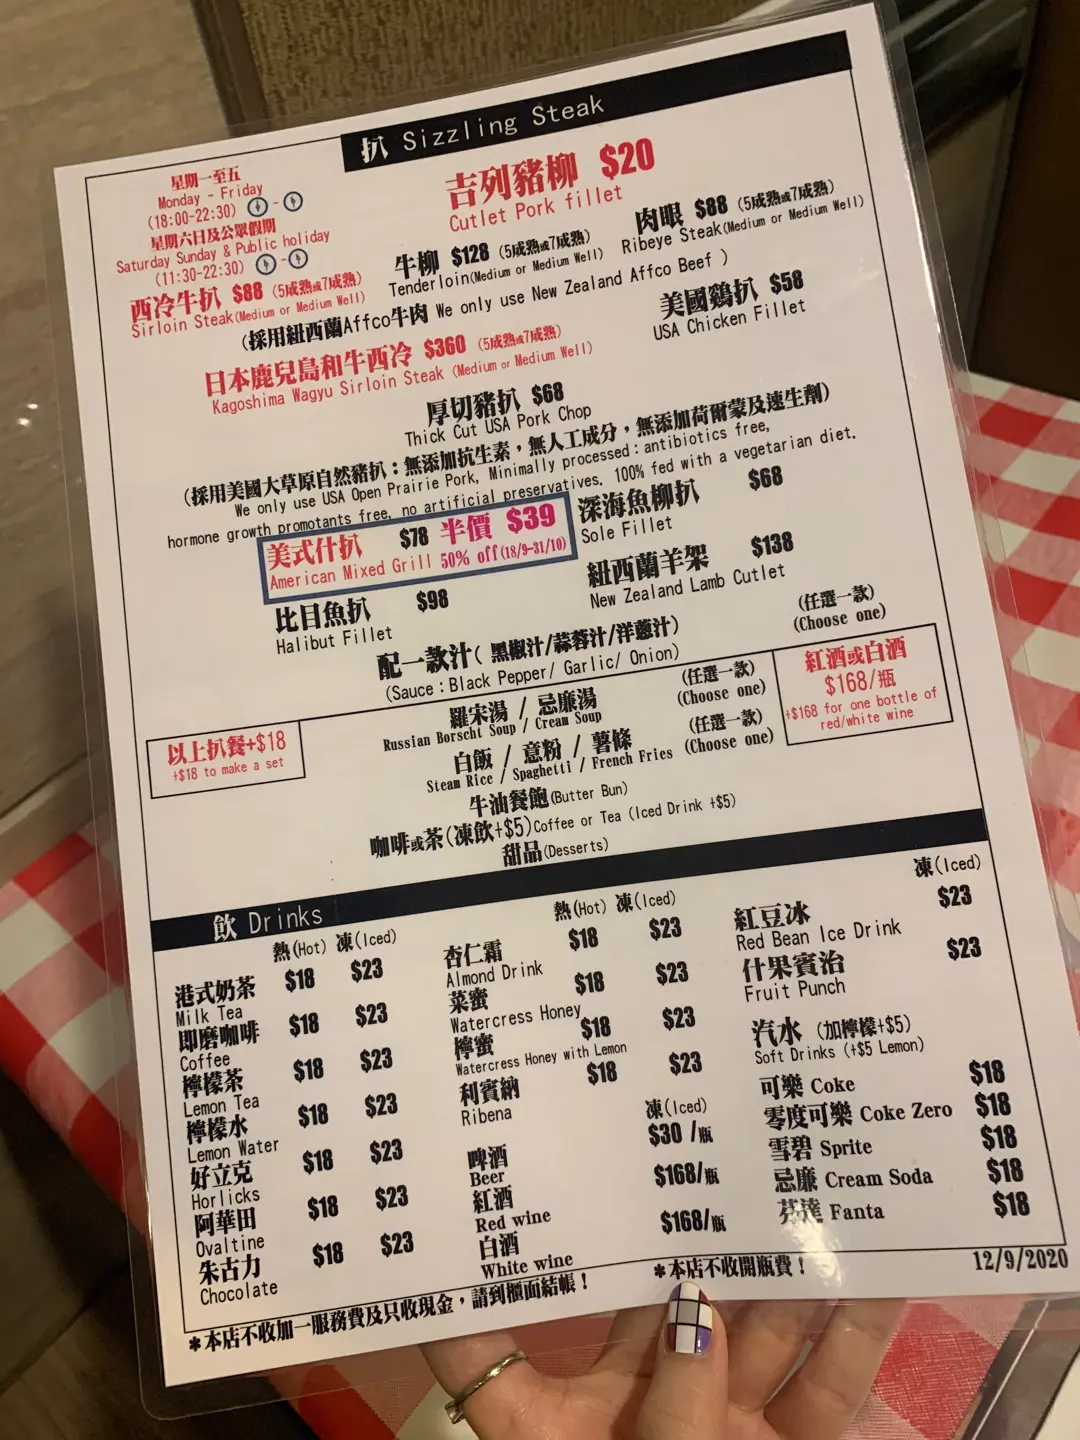 扒 Sizzling Steak
星期一至五
Monday - Friday
(18:00-22:30)
星期六日及公眾假期
Saturday Sunday & Public holiday
(11:30-22:30)
吉列豬柳 $20
Cutlet Pork fillet
西冷牛扒 $88 (5成熟或7成熟)
Sirloin Steak(Medium or Medium Well)
牛柳 $128 (5成熟或7成熟)
Tenderloin(Medium or Medium Well)
肉眼 $88 (5成熟或7成熟)
Ribeye Steak(Medium or Medium Well)
(採用紐西蘭Affco牛肉 We only use New Zealand Affco Beef )
日本鹿兒島和牛西冷 $360 (5成熟或7成熟)
Kagoshima Wagyu Sirloin Steak (Medium or Medium Well)
美國鷄扒 $58
USA Chicken Fillet
厚切豬扒 $68
Thick Cut USA Pork Chop
(採用美國大草原自然豬扒：無添加抗生素，無人工成分，無添加荷爾蒙及速生劑)
We only use USA Open Prairie Pork, Minimally processed：antibiotics free,
hormone growth promotants free, no artificial preservatives. 100% fed with a vegetarian diet.
美式什扒 $78 半價 $39
American Mixed Grill 50% off(18/9-31/10)
深海魚柳扒 $68
Sole Fillet
比目魚扒 $98
Halibut Fillet
紐西蘭羊架 $138
New Zealand Lamb Cutlet
配一款汁( 黑椒汁/蒜蓉汁/洋蔥汁) (任選一款)
(Sauce：Black Pepper/ Garlic/ Onion) (Choose one)
以上扒餐+$18
+$18 to make a set
羅宋湯 / 忌廉湯 (任選一款)
Russian Borscht Soup / Cream Soup (Choose one)
白飯 / 意粉 / 薯條 (任選一款)
Steam Rice / Spaghetti / French Fries (Choose one)
牛油餐飽(Butter Bun)
咖啡或茶(凍飲+$5)Coffee or Tea (Iced Drink +$5)
甜品(Desserts)
紅酒或白酒
$168/瓶
+$168 for one bottle of
red/white wine
飲 Drinks
熱(Hot) 凍(Iced)
港式奶茶 $18 $23
Milk Tea
即磨咖啡 $18 $23
Coffee
檸檬茶 $18 $23
Lemon Tea
檸檬水 $18 $23
Lemon Water
好立克 $18 $23
Horlicks
阿華田 $18 $23
Ovaltine
朱古力 $18 $23
Chocolate
熱(Hot) 凍(Iced)
杏仁霜 $18 $23
Almond Drink
菜蜜 $18 $23
Watercress Honey
檸蜜 $18 $23
Watercress Honey with Lemon
利賓納 $18 $23
Ribena
凍(Iced)
啤酒 $30 /瓶
Beer
紅酒 $168/瓶
Red wine
白酒 $168/瓶
White wine
凍(Iced)
紅豆冰 $23
Red Bean Ice Drink
什果賓治 $23
Fruit Punch
汽水 (加檸檬+$5)
Soft Drinks (+$5 Lemon)
可樂 Coke $18
零度可樂 Coke Zero $18
雪碧 Sprite $18
忌廉 Cream Soda $18
芬達 Fanta $18
*本店不收加一服務費及只收現金，請到櫃面結帳！
*本店不收開瓶費！
12/9/2020